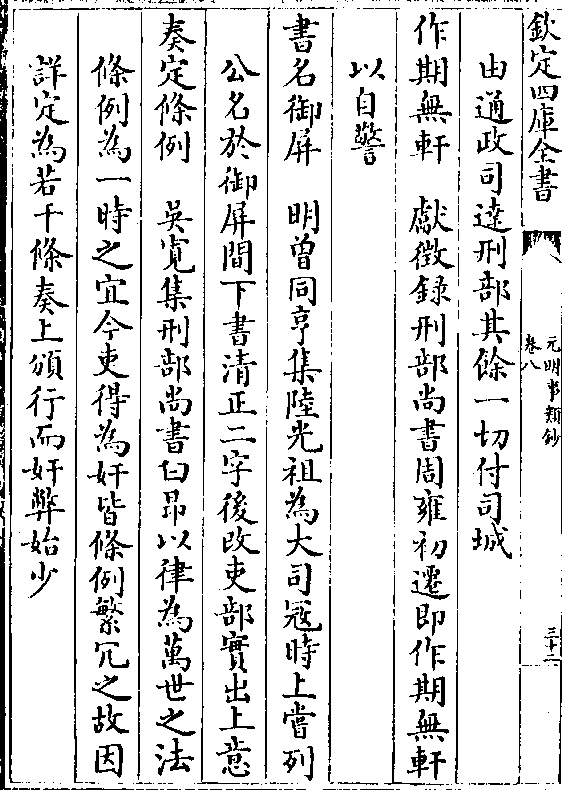 欽定四庫全書
元明事類鈔
卷八
三十二
由通政司達刑部其餘一切付司城
作期無軒　獻徵錄刑部尚書周雍初遷即作期無軒
以自警
書名御屏　明曾同亨集陸光祖為大司寇時上嘗列
公名於御屏間下書清正二字後改吏部實出上意
奏定條例　吳寛集刑部尚書白昂以律為萬世之法
條例為一時之宜今吏得為奸皆條例繁冗之故因
詳定為若干條奏上頒行而奸弊始少